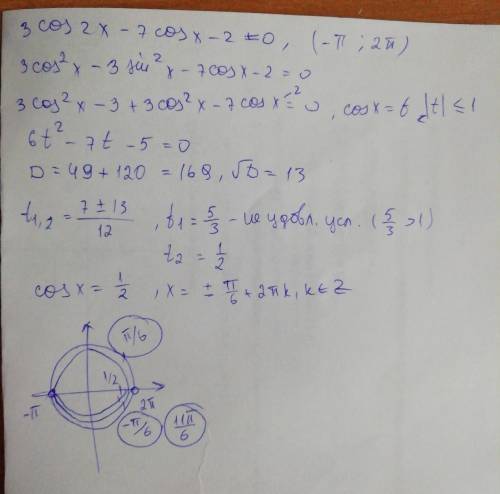 3 cos 2x - 7 cos x - 2 = 0, (-π ; 2π)
3cos²x - 3 sin²x - 7cos x - 2 = 0
3 cos²x - 3 + 3cos²x - 7cos x - 2 = 0, cos x = t, |t| ≤ 1
6t² - 7t - 5 = 0
D = 49 + 120 = 169, √D = 13
t₁,₂ = (7 ± 13)/12, t₁ = 5/3 - не удовл. усл. (5/3 > 1)
t₂ = 1/2
cos x = 1/2, x = ± π/6 + 2πk, k ∈ Z
π/6
1/2
-π
2π
-π/6
11π/6